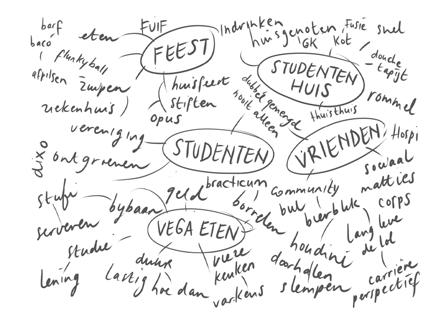 barf
eten
FUIF
indrinken
huisgenoten
Fusie
snel
baco
GK
kot
flunkyball
FEEST
douche
tapijt
afpilsen
zuipen
huisfeest
STUDENTEN
HUIS
ziekenhuis
stiften
dubbel gemengd
rommel
opus
nooit alleen
thuisthuis
vereniging
STUDENTEN
VRIENDEN
Hospi
dixo
ontgroenen
sociaal
matties
practicum
stufi
geld
community
corps
bijbaan
borrelen
bul
bierbuik
serveren
VEGA ETEN
lang leve
de lol
studie
houdini
duur
vieze
keuken
doorhalen
lening
lastig
hoe dan
varkens
slempen
carrière
perspectief